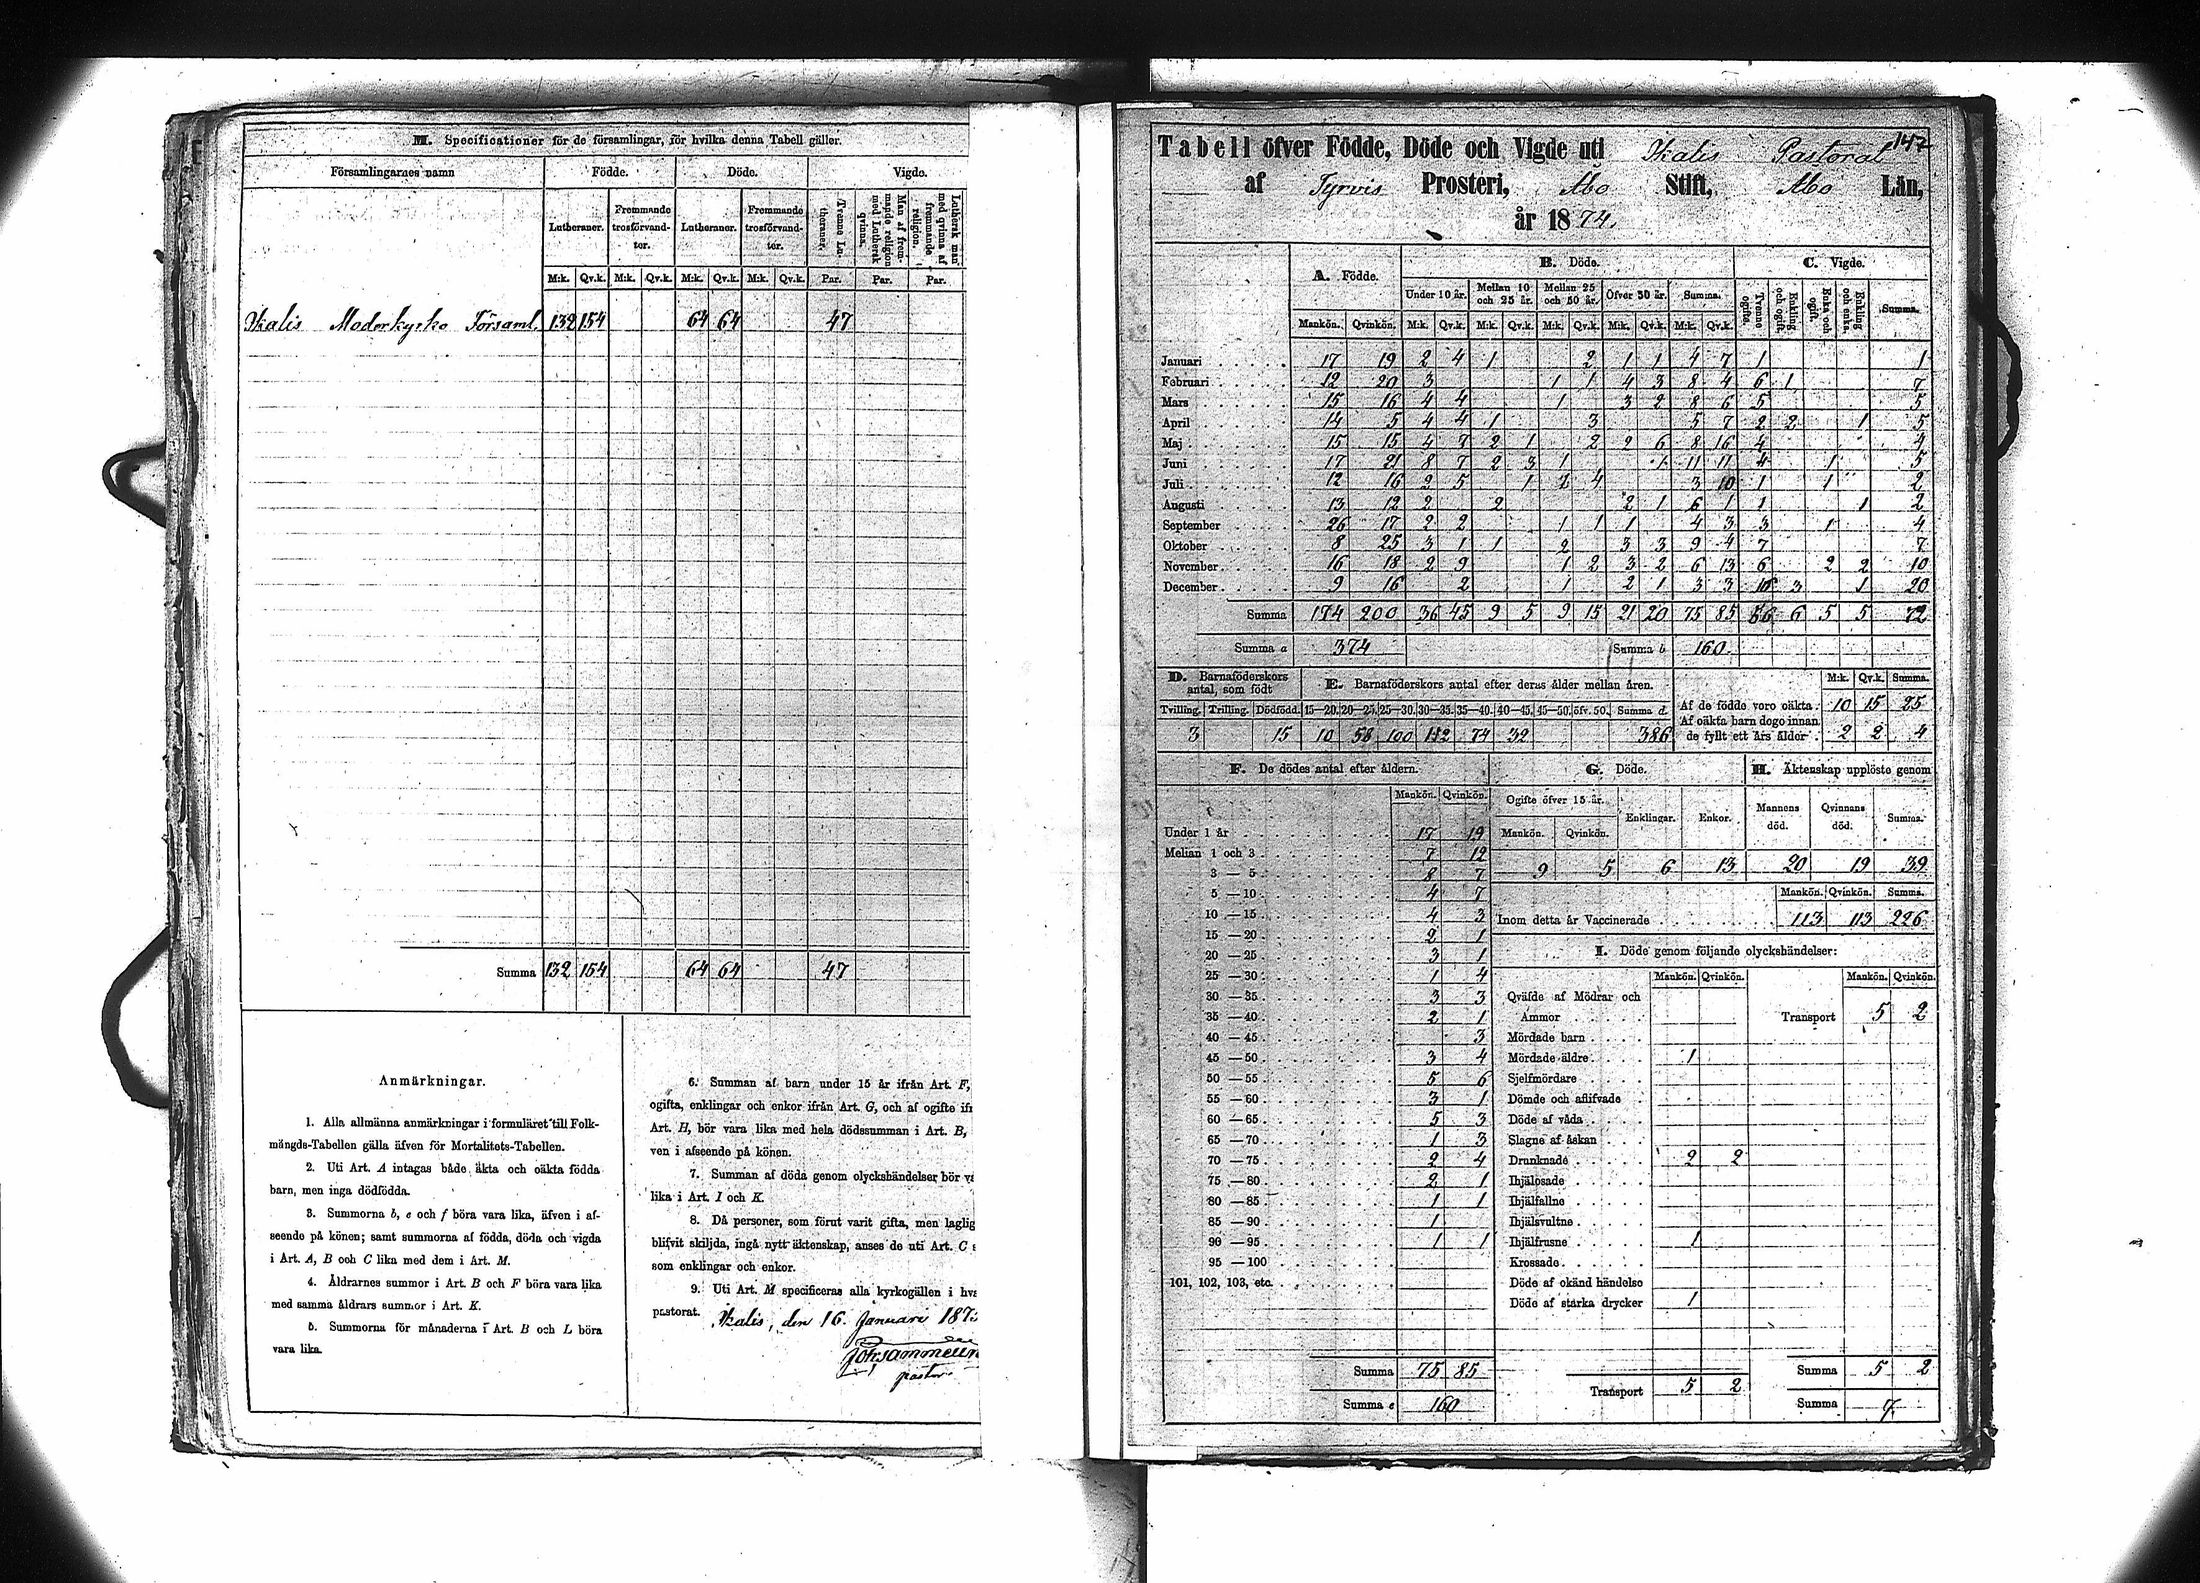 M. Specificationer för de församlingar, för hvilka denna Tabell gäller.
Församlingarnes namn Födde. Döde. Vigde.
Lutheraner. Fremmande trosförvandter. Lutheraner. Fremmande trosförvandter. Trenne Lutheraner. Man af fremmande religion med Luthersk qvinna. Luthersk man med qvinna af fremmande religion.
M:k. Qv.k. M:k. Qv.k. M:k. Qv.k. M:k. Qv.k. Par. Par. Par.
Ikalis Moderkyrko Församl. 132 154 64 64 47
Summa 132 154 64 64 47
Anmärkningar.
1. Alla allmänna anmärkningar i formuläret till Folk-
mängds-Tabellen gälla äfven för Mortalitets-Tabellen.
2. Uti Art. A intagas både äkta och oäkta födda
barn, men inga dödfödda.
3. Summorna b, e och f böra vara lika, äfven i af-
seende på könen; samt summorna af födda, döda och vigda
i Art. A, B och C lika med dem i Art. M.
4. Åldrarnes summor i Art. B och F böra vara lika
med samma åldrars summor i Art. K.
5. Summorna för månaderna i Art. B och L böra
vara lika.
6. Summan af barn under 15 år ifrån Art. F,
ogifta, enklingar och enkor ifrån Art. G, och af ogifte ifr
Art. H, bör vara lika med hela dödssumman i Art. B,
ven i afseende på könen.
7. Summan af döda genom olyckshändelser bör va
lika i Art. I och K.
8. Då personer, som förut varit gifta, men laglig
blifvit skiljda, ingå nytt äktenskap, anses de uti Art. C s
som enklingar och enkor.
9. Uti Art. M specificeras alla kyrkogällen i hva
pastorat.
Ikalis, den 16. Januari 187
pastor.
147
Tabell öfver Födde, Döde och Vigde uti Ikalis Pastorat
af Tyrvis Prosteri, Åbo Stift, Åbo Län,
år 1874.
A. Födde. B. Döde. C. Vigde.
Under 10 år. Mellan 10 och 25 år. Mellan 25 och 50 år. Öfver 50 år. Summa. Tvenne ogifta. Enkling och ogift. Enka och ogift. Enkling och enka. Summa.
Mankön. Qvinkön. M:k. Qv.k. M:k. Qv.k. M:k. Qv.k. M:k. Qv.k. M:k. Qv.k.
Januari 17 19 2 4 1 2 1 1 4 7 1 1
Februari 12 20 3 1 1 4 3 8 4 6 1 7
Mars 15 16 4 4 1 3 2 8 6 5 5
April 14 5 4 4 1 3 5 7 2 2 1 5
Maj 15 15 4 7 2 1 2 2 6 8 16 4 4
Juni 17 21 8 7 2 3 1 1 11 11 4 1 5
Juli 12 16 2 5 1 2 4 3 10 1 1 2
Augusti 13 12 2 2 2 1 6 1 1 1 2
September 26 17 2 2 1 1 1 4 3 3 1 4
Oktober 8 25 3 1 1 2 3 3 9 4 7 7
November 16 18 2 9 1 2 3 2 6 13 6 2 2 10
December 9 16 2 1 2 1 3 3 16 3 1 20
Summa 174 200 36 45 9 5 9 15 21 20 75 85 56 6 5 5 72
Summa a 374 Summa b 160
D. Barnaföderskors antal, som födt
E. Barnaföderskors antal efter deras ålder mellan åren.
M:k. Qv.k. Summa.
Tvilling. Trilling. Dödfödd. 15—20. 20—25. 25—30. 30—35. 35—40. 40—45. 45—50. öfv. 50. Summa d.
3 15 10 58 100 112 74 32 386
Af de födde voro oäkta. 10 15 25
Af oäkta barn dogo innan
de fyllt ett års ålder. 2 2 4
F. De dödes antal efter åldern.
Mankön. Qvinkön.
Under 1 år 17 19
Mellan 1 och 3 7 12
3 — 5 8 7
5 — 10 4 7
10 — 15 4 3
15 — 20 2 1
20 — 25 3 1
25 — 30 1 4
30 — 35 3 3
35 — 40 2 1
40 — 45 3
45 — 50 3 4
50 — 55 5 6
55 — 60 3 1
60 — 65 5 3
65 — 70 1 3
70 — 75 2 4
75 — 80 2 1
80 — 85 1 1
85 — 90 1
90 — 95 1 1
95 — 100
101, 102, 103, etc.
Summa 75 85
Summa e 160
G. Döde.
Ogifte öfver 15 år. Enklingar. Enkor.
Mankön. Qvinkön.
9 5 6 13
H. Äktenskap upplöste genom
Mannens död. Qvinnans död. Summa.
20 19 39
Mankön. Qvinkön. Summa.
Inom detta år Vaccinerade 113 113 226
I. Döde genom följande olyckshändelser:
Mankön. Qvinkön. Mankön. Qvinkön.
Qväfde af Mödrar och
Ammor Transport 5 2
Mördade barn
Mördade äldre 1
Sjelfmördare
Dömde och aflifvade
Döde af våda
Slagne af åskan
Drunknade 2 2
Ihjälosade
Ihjälfallne
Ihjälsvultne
Ihjälfrusne 1
Krossade
Döde af okänd händelse
Döde af starka drycker 1
Transport 5 2
Summa 5 2
Summa 7.